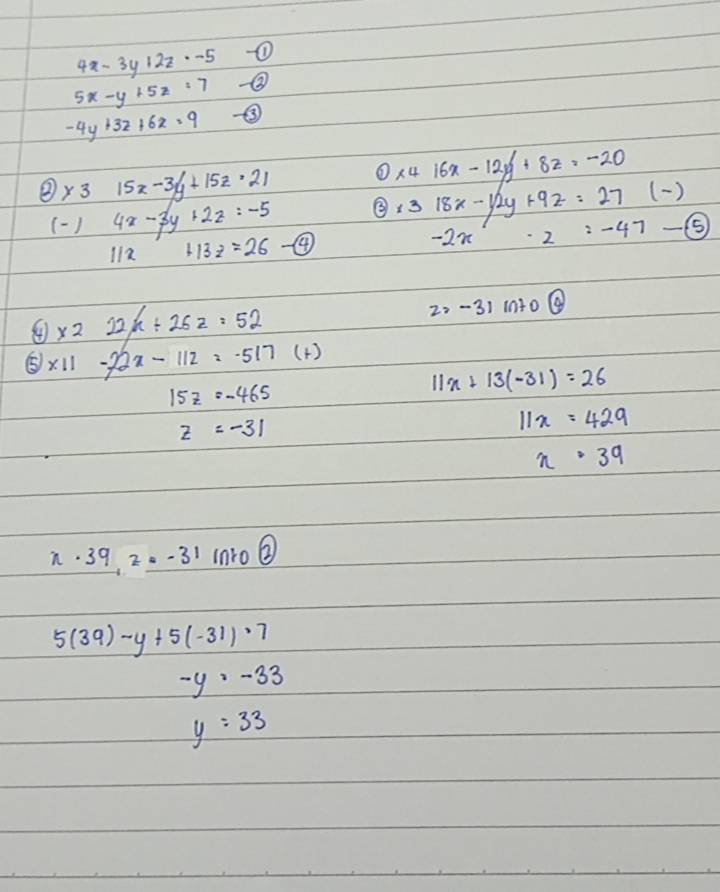 4x - 3y + 2z = -5 -①
5x - y + 5z = 7 -②
-4y + 3z + 6x = 9 -③
② x 3 15x - 3y + 15z = 21
(-) 4x - 3y + 2z = -5
11x + 13z = 26 -④
① x 4 16x - 12y + 8z = -20
③ x 3 18x - 12y + 9z = 27 (-)
-2x - z = -47 -⑤
④ x 2 22x + 26z = 52
⑤ x 11 -22x - 11z = -517 (+)
15z = -465
z = -31
z = -31 into ④
11x + 13(-31) = 26
11x = 429
x = 39
x = 39, z = -31 into ②
5(39) - y + 5(-31) = 7
-y = -33
y = 33